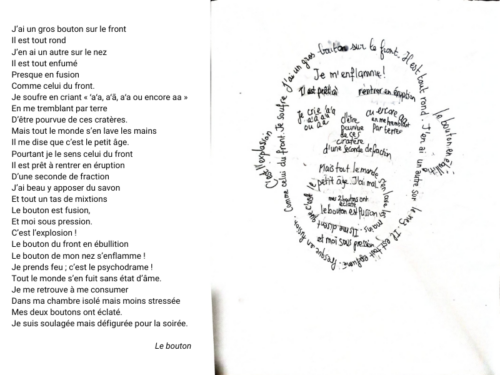 J'ai un gros bouton sur le front
Il est tout rond
J'en ai un autre sur le nez
Il est tout enfumé
Presque en fusion
Comme celui du front.
Je souffre en criant « 'a'a, a'ä, a'a ou encore aa »
En me tremblant par terre
D'être pourvue de ces cratères.
Mais tout le monde s'en lave les mains
Il me dise que c'est le petit âge.
Pourtant je le sens celui du front
Il est prêt à rentrer en éruption
D'une seconde de fraction
J'ai beau y apposer du savon
Et tout un tas de mixtions
Le bouton est fusion,
Et moi sous pression.
C'est l'explosion !
Le bouton du front en ébullition
Le bouton de mon nez s'enflamme !
Je prends feu ; c'est le psychodrame !
Tout le monde s'en fuit sans état d'âme.
Je me retrouve à me consumer
Dans ma chambre isolé mais moins stressée
Mes deux boutons ont éclaté.
Je suis soulagée mais défigurée pour la soirée.
Le bouton
J'ai un gros bouton sur le front. Il est tout rond. J'en ai un autre sur le nez. Il est tout enfumé. Presque en fusion. Comme celui du front. Je souffre
C'est l'explosion
le bouton en ébullition
Je m'enflamme !
Il est prêt à
rentrer en éruption
Je crie 'a'a
a'ä a'a
ou aa
ou encore aa
en me tremblant
par terre
d'être
pourvue
de ces
cratère
d'une seconde de fraction
Mais tout le monde
petit âge. J'ai mal
mes 2 boutons ont
éclaté
le bouton est fusion
et moi sous pression